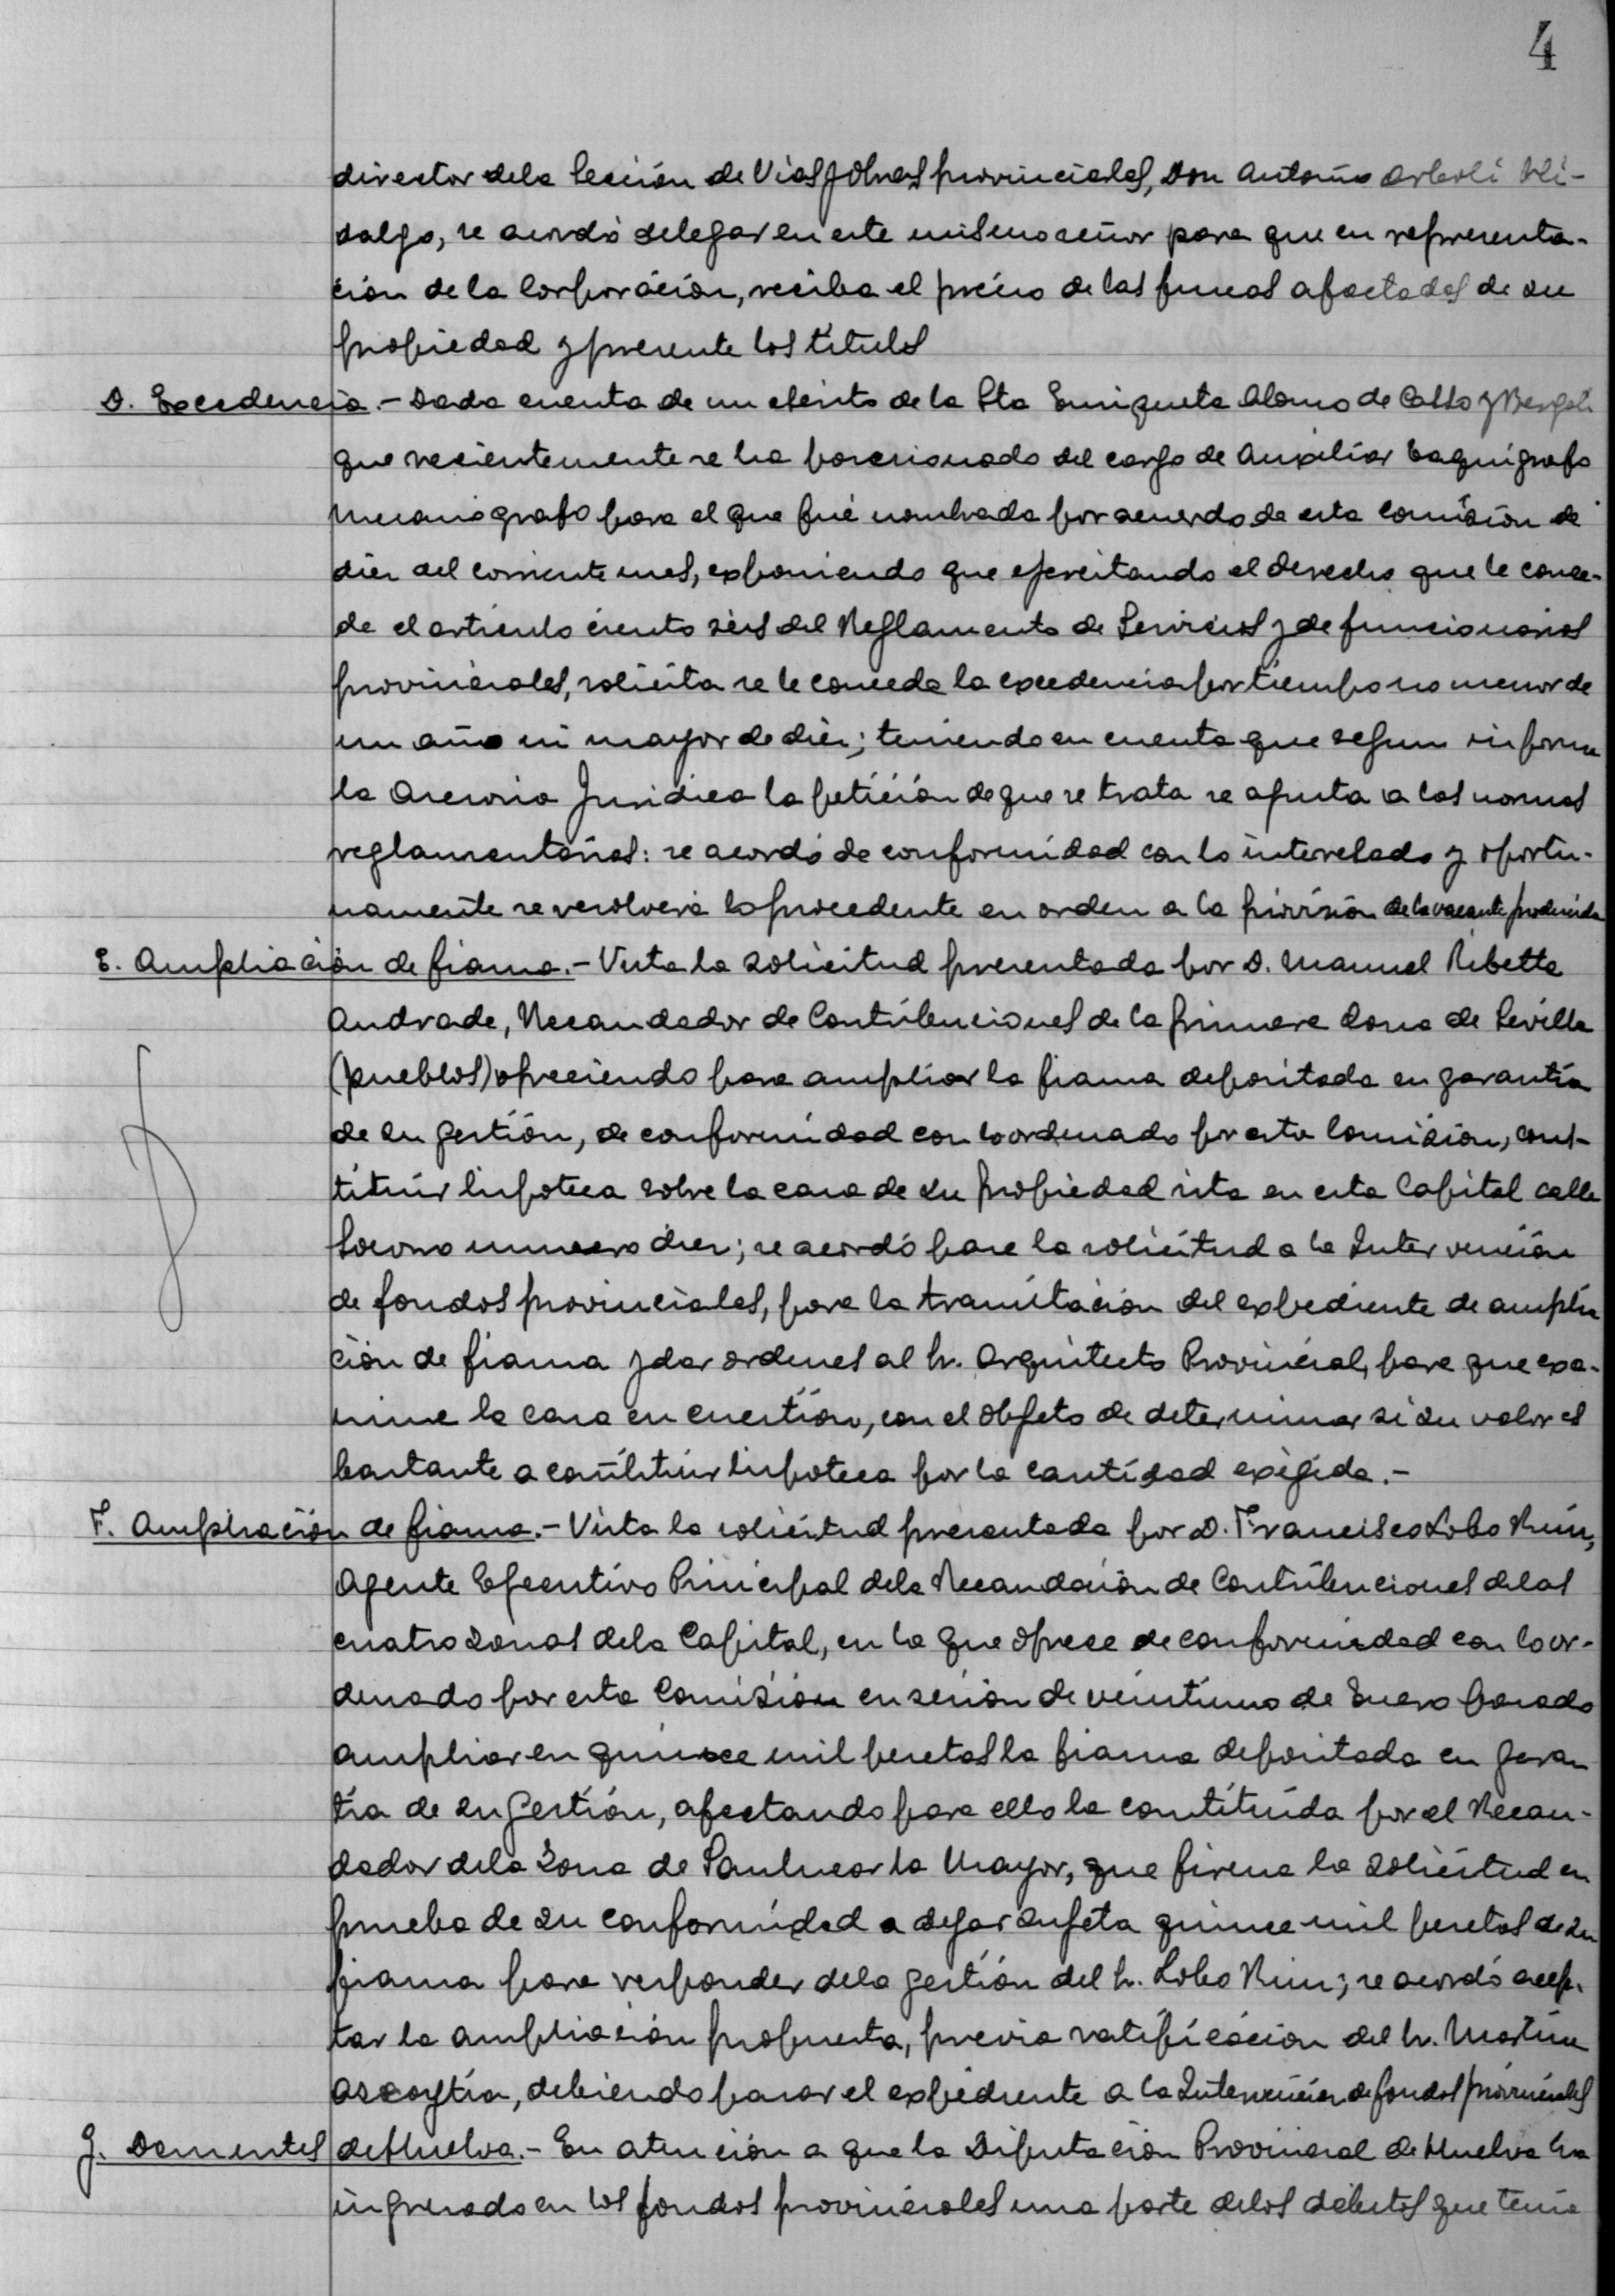 4
director dela Sección de Vias y Obras provinciales, Don Antonio Arboli Hi-
dalgo, se acordó delegar en este mismo señor para que en representa-
ción de la Corporación, reciba el precio de las fincas afectadas de su
propiedad y presente los títulos
D. Excedencia.- Dada cuenta de un escrito de la Sta Enriqueta Alonso de Caso y
que recientemente se ha posesionado del cargo de Auxiliar taquígrafo
mecanografo para el que fué nombrada por acuerdo de esta Comisión de
diez del corriente mes, exponiendo que ejercitando el derecho que le conce-
de el artículo ciento seis del Reglamento de Servicios y de funcionarios
provinciales, solicita se le conceda la excedencia por tiempo no menor de
un año ni mayor de diez; teniendo en cuenta que segun informa
la Asesoria Juridica la petición de que se trata se ajusta a las normas
reglamentarias: se acordó de conformidad con lo interesado y oportu-
namente se resolvera lo procedente en orden a la provisión de la vacante producida
E. Ampliación de fianza.- Vista la solicitud presentada por D. Manuel Ribetta
Andrade, Recaudador de Contribuciones de la primera Zona de Sevilla
(pueblos) ofreciendo para ampliar la fianza depositada en garantía
de su gestión, de conformidad con lo ordenado por esta Comisión, cons-
tituir hipoteca sobre la casa de su propiedad sita en esta Capital calle
Socorro numero diez; se acordó pase la solicitud a la Intervención
de fondos provinciales, para la tramitación del expediente de amplia
ción de fianza y dar ordenes al Sr. Arquitecto Provincial, para que exa-
mine la casa en cuestión, con el objeto de determinar si su valor es
bastante a constituir hipoteca por la cantidad exigida.-
F. Ampliación de fianza.- Vista la solicitud presentada por D. Francisco Lobo Ruiz,
Agente Ejecutivo Principal dela Recaudación de Contribuciones delas
cuatro Zonas dela Capital, en la que ofrece de conformidad con lo or-
denado por esta Comisión en sesión de veintiuno de Enero pasado
ampliar en quince mil pesetas la fianza depositada en garan
tía de su gestión, afectando para ello la constituída por el Recau-
dador dela Zona de Sanlucar la Mayor, que firma la solicitud en
prueba de su conformidad a dejar sujeta quince mil pesetas de su
fianza para responder dela gestión del Sr. Lobo Ruiz; se acordó acep-
tar la ampliación propuesta, previa ratificación del Sr. Martínez
Azcoytia, debiendo pasar el expediente a la Intervención de fondos provinciales
G. Dementes de Huelva.- En atención a que la Diputación Provincial de Huelva ha
ingresado en los fondos provinciales una parte delos débitos que tenía